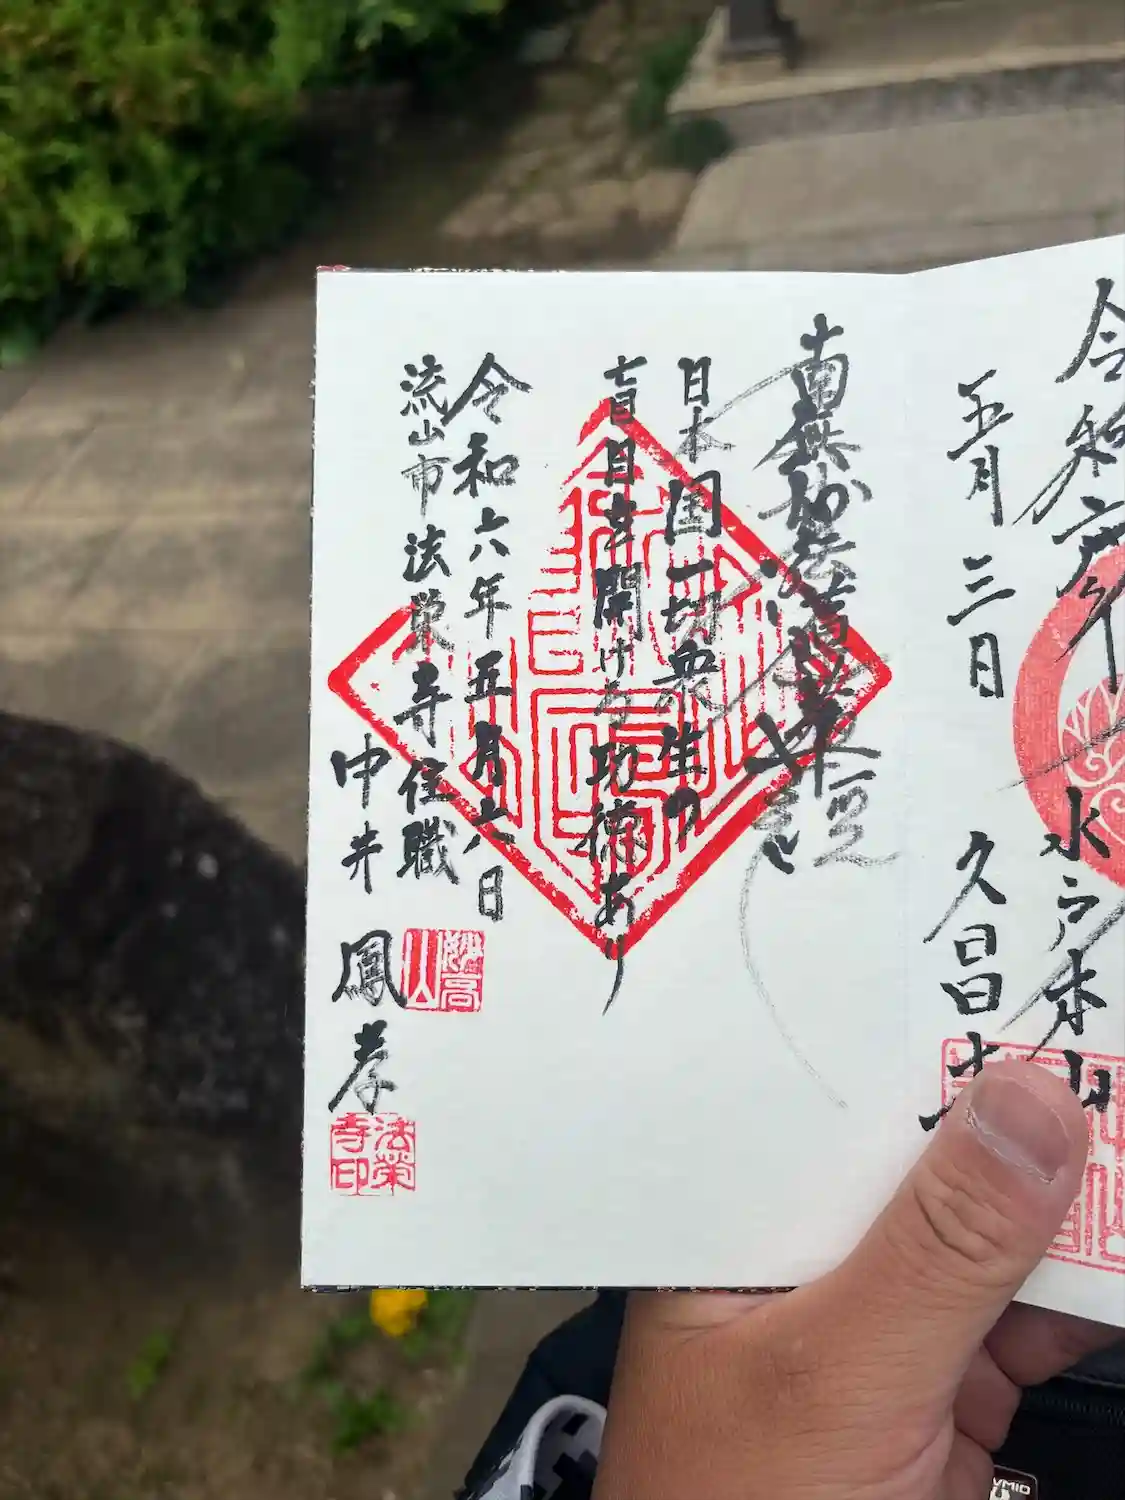 令和六年
五月三日
水戸 本山
久昌寺
南無妙法蓮華経
日本国一切衆生の
盲目を開ける功徳あり
令和六年五月六日
流山市法栄寺住職
中井鳳孝
妙高山
法栄寺印